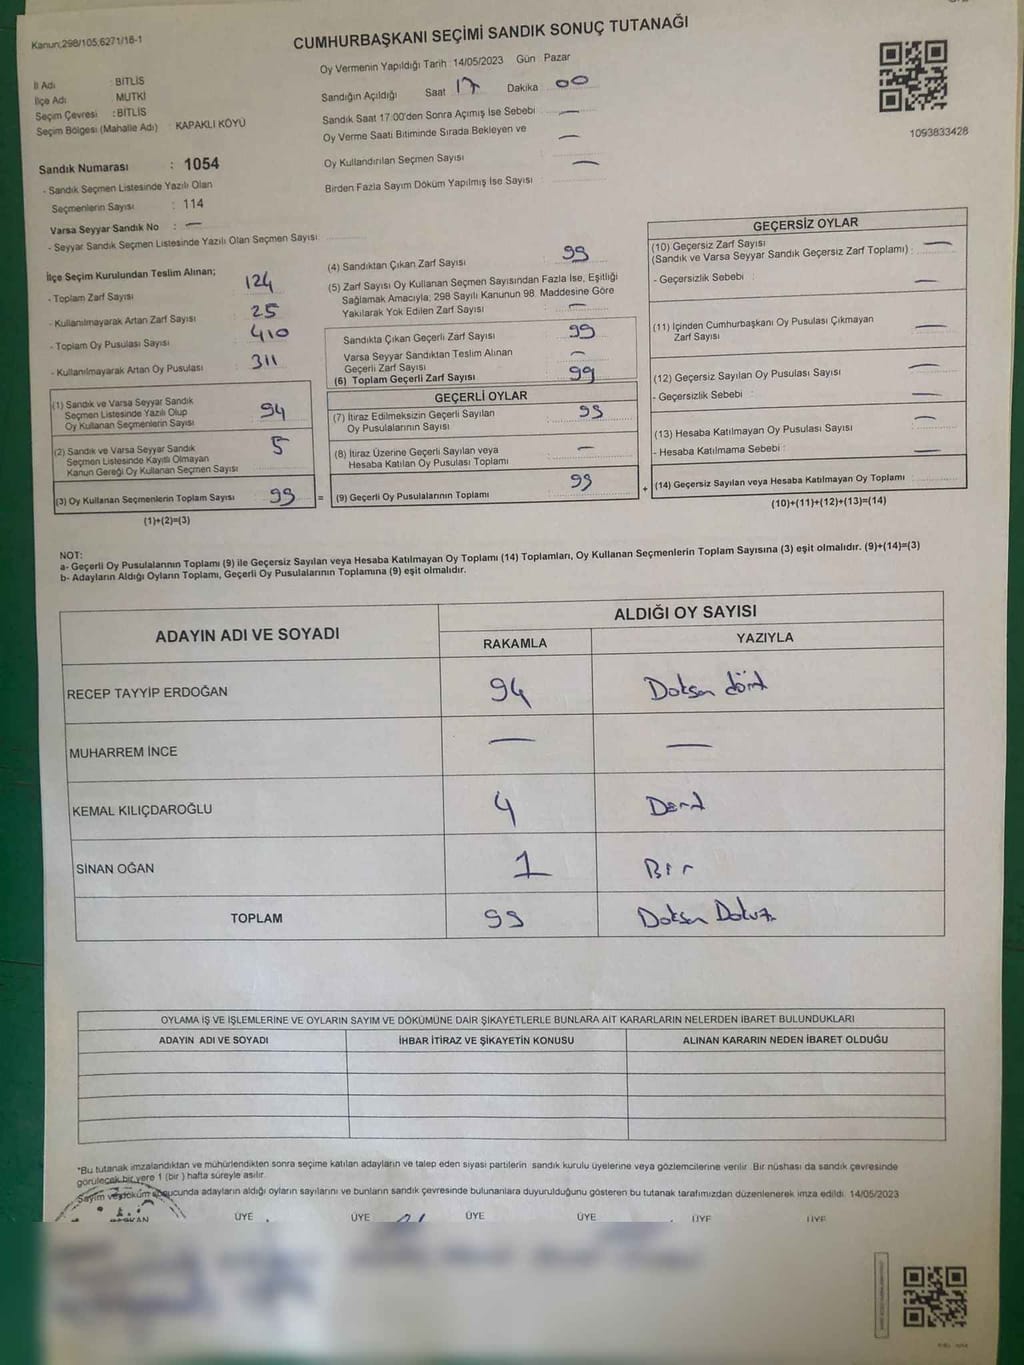 Kanun;298/105;6271/18-1
CUMHURBAŞKANI SEÇİMİ SANDIK SONUÇ TUTANAĞI
Oy Vermenin Yapıldığı Tarih : 14/05/2023 Gün Pazar
İl Adı : BİTLİS
İlçe Adı : MUTKİ
Seçim Çevresi : BİTLİS
Seçim Bölgesi (Mahalle Adı) : KAPAKLI KÖYÜ
Sandık Numarası : 1054
- Sandık Seçmen Listesinde Yazılı Olan
Seçmenlerin Sayısı : 114
Varsa Seyyar Sandık No : —
- Seyyar Sandık Seçmen Listesinde Yazılı Olan Seçmen Sayısı:
Sandığın Açıldığı Saat 17 Dakika 00
Sandık Saat 17.00'den Sonra Açımış İse Sebebi : —
Oy Verme Saati Bitiminde Sırada Bekleyen ve : —
Oy Kullandırılan Seçmen Sayısı : —
Birden Fazla Sayım Döküm Yapılmış İse Sayısı :
1093833428
İlçe Seçim Kurulundan Teslim Alınan;
- Toplam Zarf Sayısı 124
- Kullanılmayarak Artan Zarf Sayısı 25
- Toplam Oy Pusulası Sayısı 410
- Kullanılmayarak Artan Oy Pusulası 311
(1) Sandık ve Varsa Seyyar Sandık
Seçmen Listesinde Yazılı Olup
Oy Kullanan Seçmenlerin Sayısı 94
(2) Sandık ve Varsa Seyyar Sandık
Seçmen Listesinde Kayıtlı Olmayan
Kanun Gereği Oy Kullanan Seçmen Sayısı 5
(3) Oy Kullanan Seçmenlerin Toplam Sayısı 99 =
(1)+(2)=(3)
(4) Sandıktan Çıkan Zarf Sayısı 99
(5) Zarf Sayısı Oy Kullanan Seçmen Sayısından Fazla İse, Eşitliği
Sağlamak Amacıyla; 298 Sayılı Kanunun 98. Maddesine Göre
Yakılarak Yok Edilen Zarf Sayısı : —
Sandıkta Çıkan Geçerli Zarf Sayısı 99
Varsa Seyyar Sandıktan Teslim Alınan
Geçerli Zarf Sayısı —
(6) Toplam Geçerli Zarf Sayısı 99
GEÇERLİ OYLAR
(7) İtiraz Edilmeksizin Geçerli Sayılan
Oy Pusulalarının Sayısı 99
(8) İtiraz Üzerine Geçerli Sayılan veya
Hesaba Katılan Oy Pusulası Toplamı —
(9) Geçerli Oy Pusulalarının Toplamı 99 +
GEÇERSİZ OYLAR
(10) Geçersiz Zarf Sayısı
(Sandık ve Varsa Seyyar Sandık Geçersiz Zarf Toplamı) : —
- Geçersizlik Sebebi : —
(11) İçinden Cumhurbaşkanı Oy Pusulası Çıkmayan
Zarf Sayısı : —
(12) Geçersiz Sayılan Oy Pusulası Sayısı : —
- Geçersizlik Sebebi : —
(13) Hesaba Katılmayan Oy Pusulası Sayısı : —
- Hesaba Katılmama Sebebi : —
(14) Geçersiz Sayılan veya Hesaba Katılmayan Oy Toplamı :
(10)+(11)+(12)+(13)=(14)
NOT:
a- Geçerli Oy Pusulalarının Toplamı (9) ile Geçersiz Sayılan veya Hesaba Katılmayan Oy Toplamı (14) Toplamları, Oy Kullanan Seçmenlerin Toplam Sayısına (3) eşit olmalıdır. (9)+(14)=(3)
b- Adayların Aldığı Oyların Toplamı, Geçerli Oy Pusulalarının Toplamına (9) eşit olmalıdır.
ADAYIN ADI VE SOYADI ALDIĞI OY SAYISI
RAKAMLA YAZIYLA
RECEP TAYYİP ERDOĞAN 94 Doksan dört
MUHARREM İNCE — —
KEMAL KILIÇDAROĞLU 4 Dört
SİNAN OĞAN 1 Bir
TOPLAM 99 Doksan Dokuz
OYLAMA İŞ VE İŞLEMLERİNE VE OYLARIN SAYIM VE DÖKÜMÜNE DAİR ŞİKAYETLERLE BUNLARA AİT KARARLARIN NELERDEN İBARET BULUNDUKLARI
ADAYIN ADI VE SOYADI İHBAR İTİRAZ VE ŞİKAYETİN KONUSU ALINAN KARARIN NEDEN İBARET OLDUĞU
*Bu tutanak imzalandıktan ve mühürlendikten sonra seçime katılan adayların ve talep eden siyasi partilerin sandık kurulu üyelerine veya gözlemcilerine verilir. Bir nüshası da sandık çevresinde
görülecek bir yere 1 (bir ) hafta süreyle asılır.
Sayım ve döküm sonucunda adayların aldığı oyların sayılarını ve bunların sandık çevresinde bulunanlara duyurulduğunu gösteren bu tutanak tarafımızdan düzenlenerek imza edildi. 14/05/2023
BAŞKAN ÜYE ÜYE ÜYE ÜYE ÜYE ÜYE